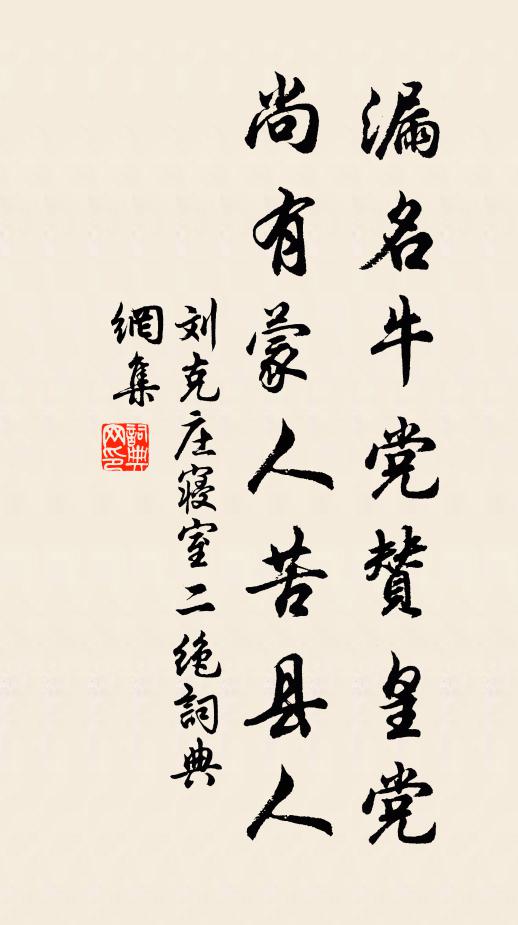 漏名牛党赞皇党
尚有蒙人苦县人
刘克庄寝室二绝詞典
網集
詞典
网印